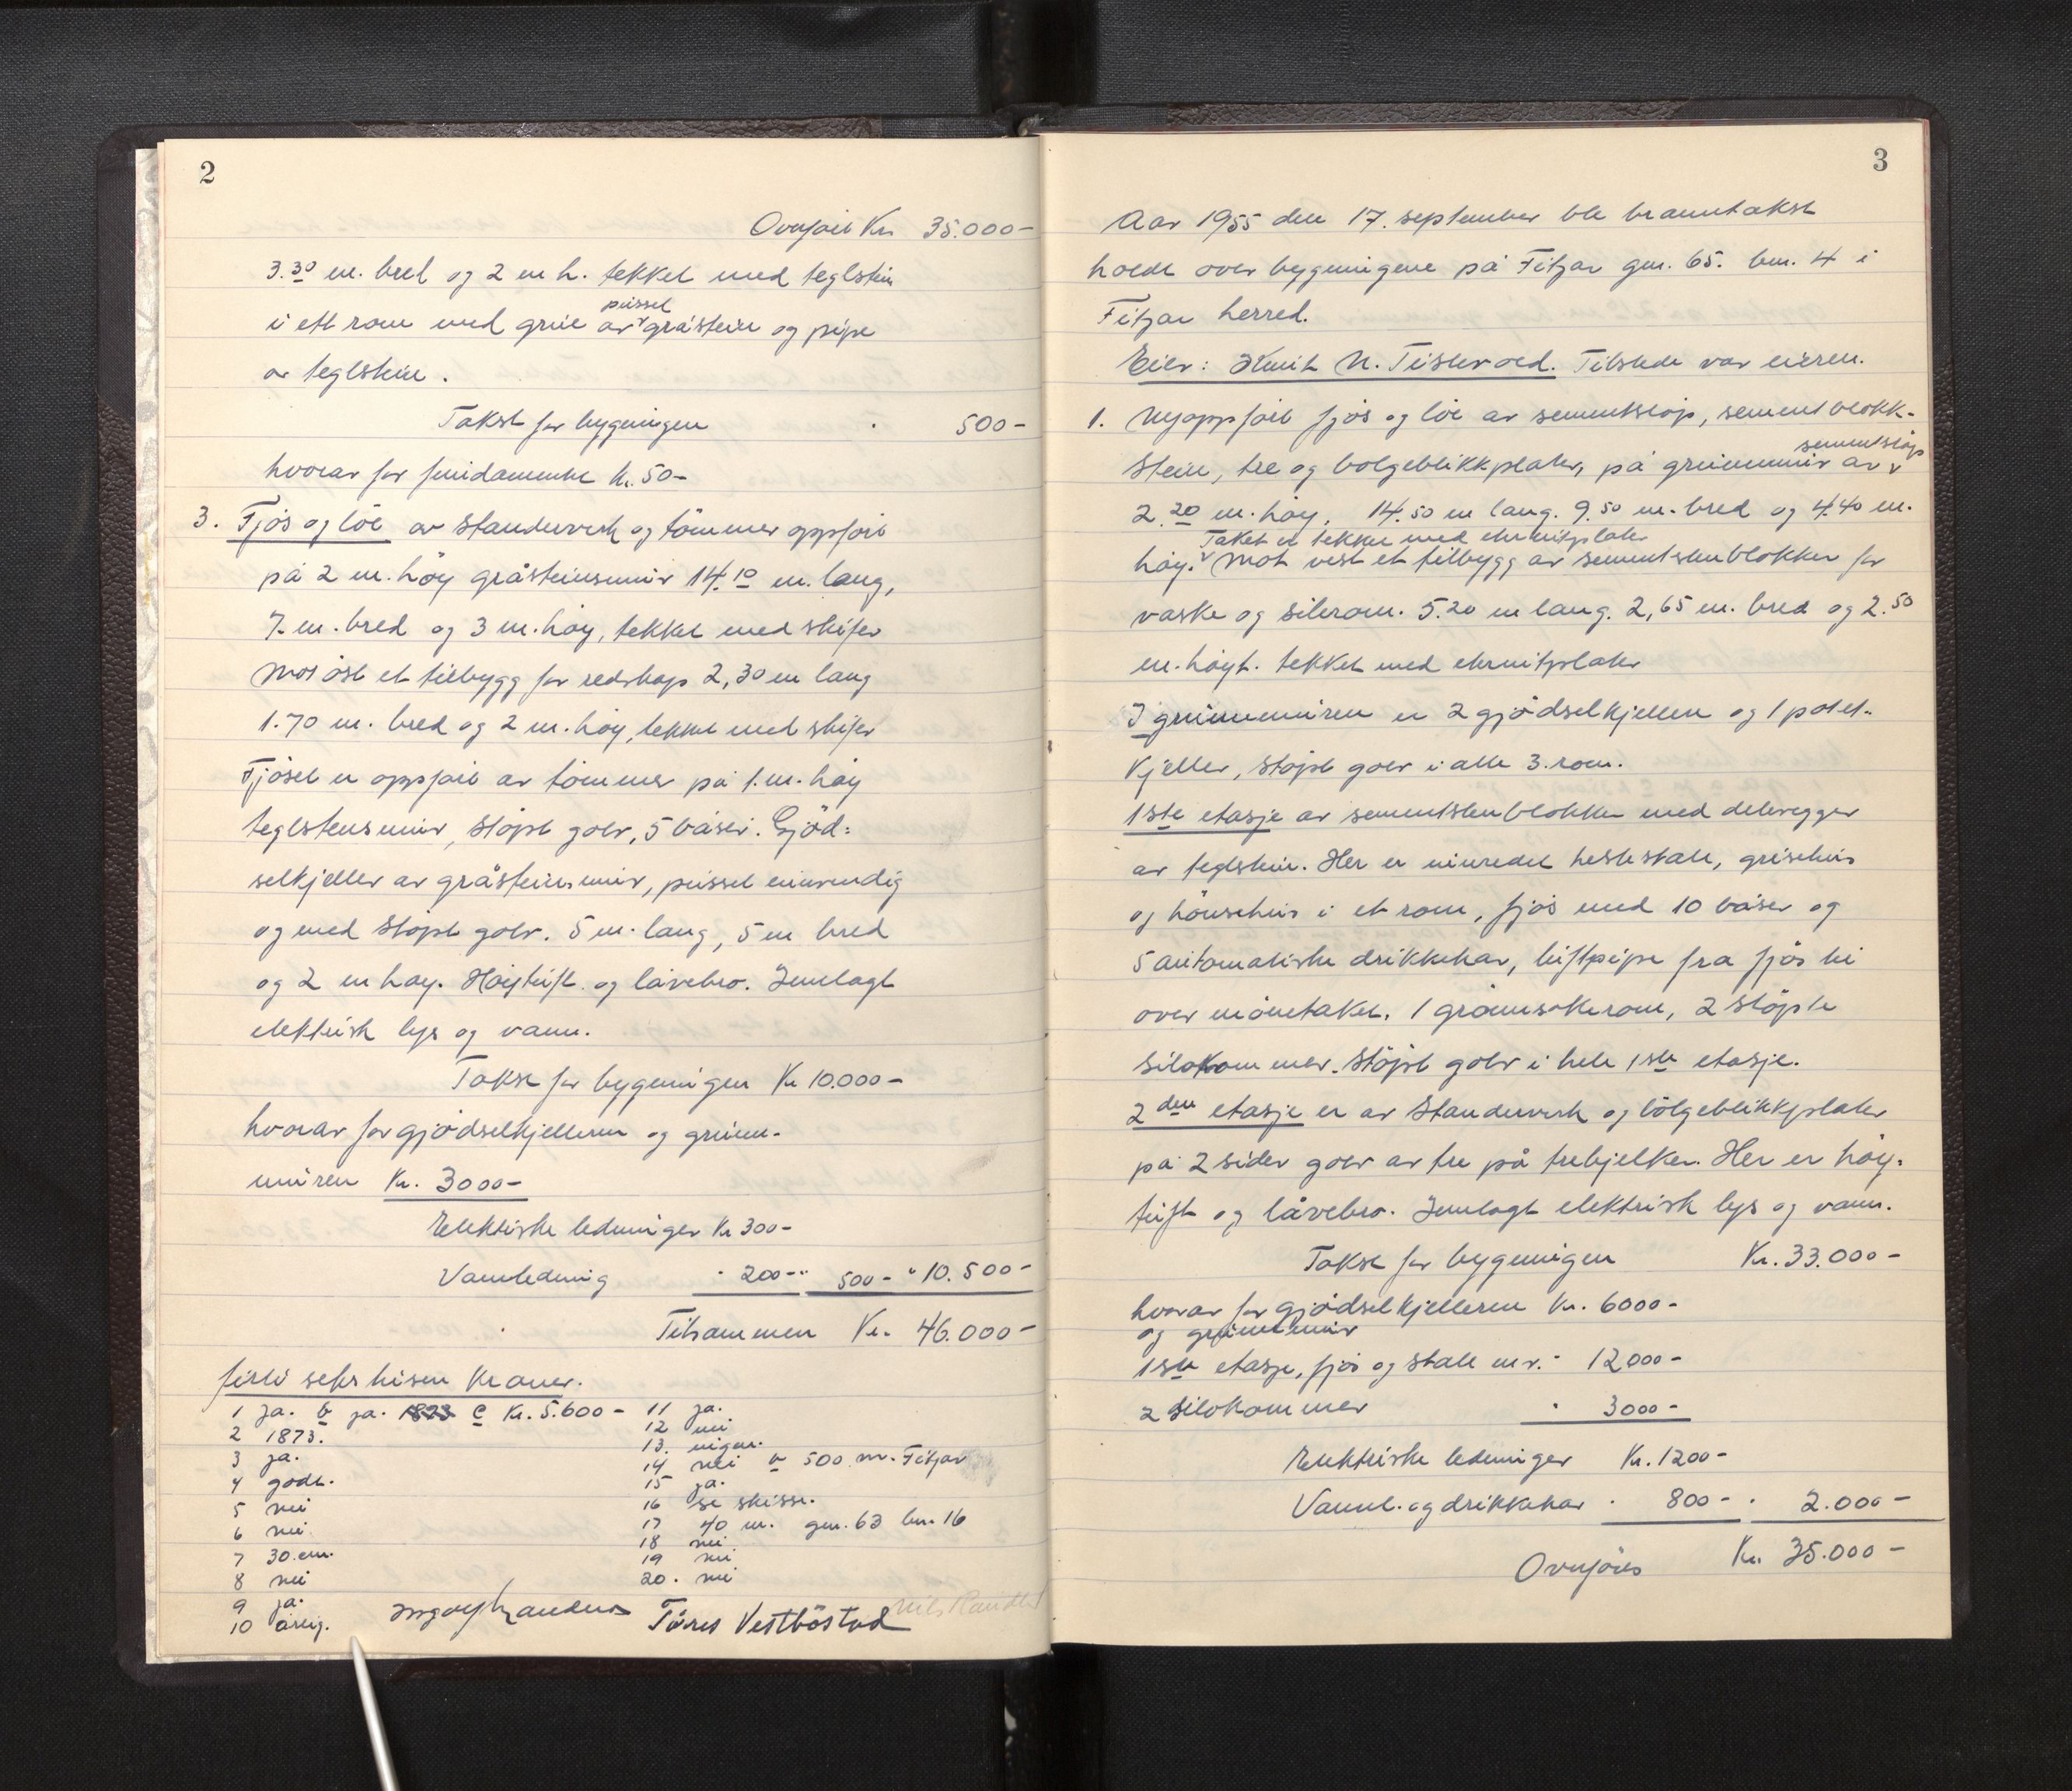 2
Overført Kr. 35.000-
3.30 m. bred og 2 m h. tekket med teglstein
pusset
i ett rom med grue av gråstein og pipe
av teglstein.
Takst for bygningen " 500-
hvorav for fundamentet Kr. 50-
3. Fjøs og löe av standerverk og tömmer oppført
på 2 m. höy gråsteinsmur 14.10 m. lang,
7 m. bred og 3 m. höy, tekket med skifer
Mot öst et tilbygg for redskap 2,30 m lang
1.70 m. bred og 2 m. höy, tekket med skifer
Fjöset er oppfört av tömmer på 1. m. höy
teglstensmur, stöpt golv, 5 båser. Gjöd-
selkjeller av gråsteinsmur, pusset innvendig
og med stöpt golv. 5 m. lang, 5 m bred
og 2 m höy. Höytrift og låvebro. Innlagt
elektrisk lys og vann.
Takst for bygningen Kr 10.000-
hvorav for gjödselkjelleren og grunn-
muren Kr. 3000-
Elektriske ledninger Kr 300-
Vannledning " 200-" 500- " 10.500-
Tilsammen Kr. 46.000-
förti seks tusen Kroner.
1 ja. b ja. 1823 c Kr. 5.600-
2 1873.
3 ja.
4 godt.
5 nei
6 nei
7 30 cm.
8 nei
9 ja.
10 årlig.
11 ja.
12 nei
13. ingen.
14 nei b 500 m. Fitjar
15 ja.
16 se skisse.
17 40 m. gnr. 63 bnr. 16
18 nei
19 nei
20. nei
Töres Vestböstad
3
Aar 1955 den 17. september ble branntakst
holdt over bygningene på Fitjar gnr. 65. bnr. 4 i
Fitjar herred.
Eier: Knut N. Tislevold. Tilstede var eieren.
1. Nyoppfört fjös og löe av sementstöp, sementblokk-
sementstöp
stein, tre og bölgeblikkplater, på grunnmur av
2.20 m. höy, 14.50 m lang. 9.50 m. bred og 4.40 m.
Taket er tekket med eternitplater
höy. Mot vest et tilbygg av sementstenblokker for
vaske og silerom. 5.20 m lang. 2,65 m. bred og 2.50
m. höyt. tekket med eternitplater
I grunnmuren er 2 gjödselkjellere og 1 potet-
kjeller, stöpt golv i alle 3. rom.
1ste etasje av sementstenblokker med delevegger
av teglstein. Her er innredet hestestall, grisehus
og hönsehus i et rom, fjös med 10 båser og
5 automatiske drikkekar, luftpipe fra fjös til
over mönetaket. 1 grönnsakerom, 2 stöpte
silokommer. Stöpt golv i hele 1ste etasje.
2den etasje er av standerverk og bölgeblikkplater
på 2 sider golv av tre på trebjelker. Her er höy-
trift og låvebro. Innlagt elektrisk lys og vann.
Takst for bygningen Kr. 33.000-
hvorav for gjödselkjelleren Kr. 6000-
og grunnmur
1ste etasje, fjös og stall m.v. " 12000-
2 silokommer " 3000-
Elektriske ledninger Kr. 1200-
Vannl. og drikkekar " 800- " 2.000-
Overföres Kr. 35.000-